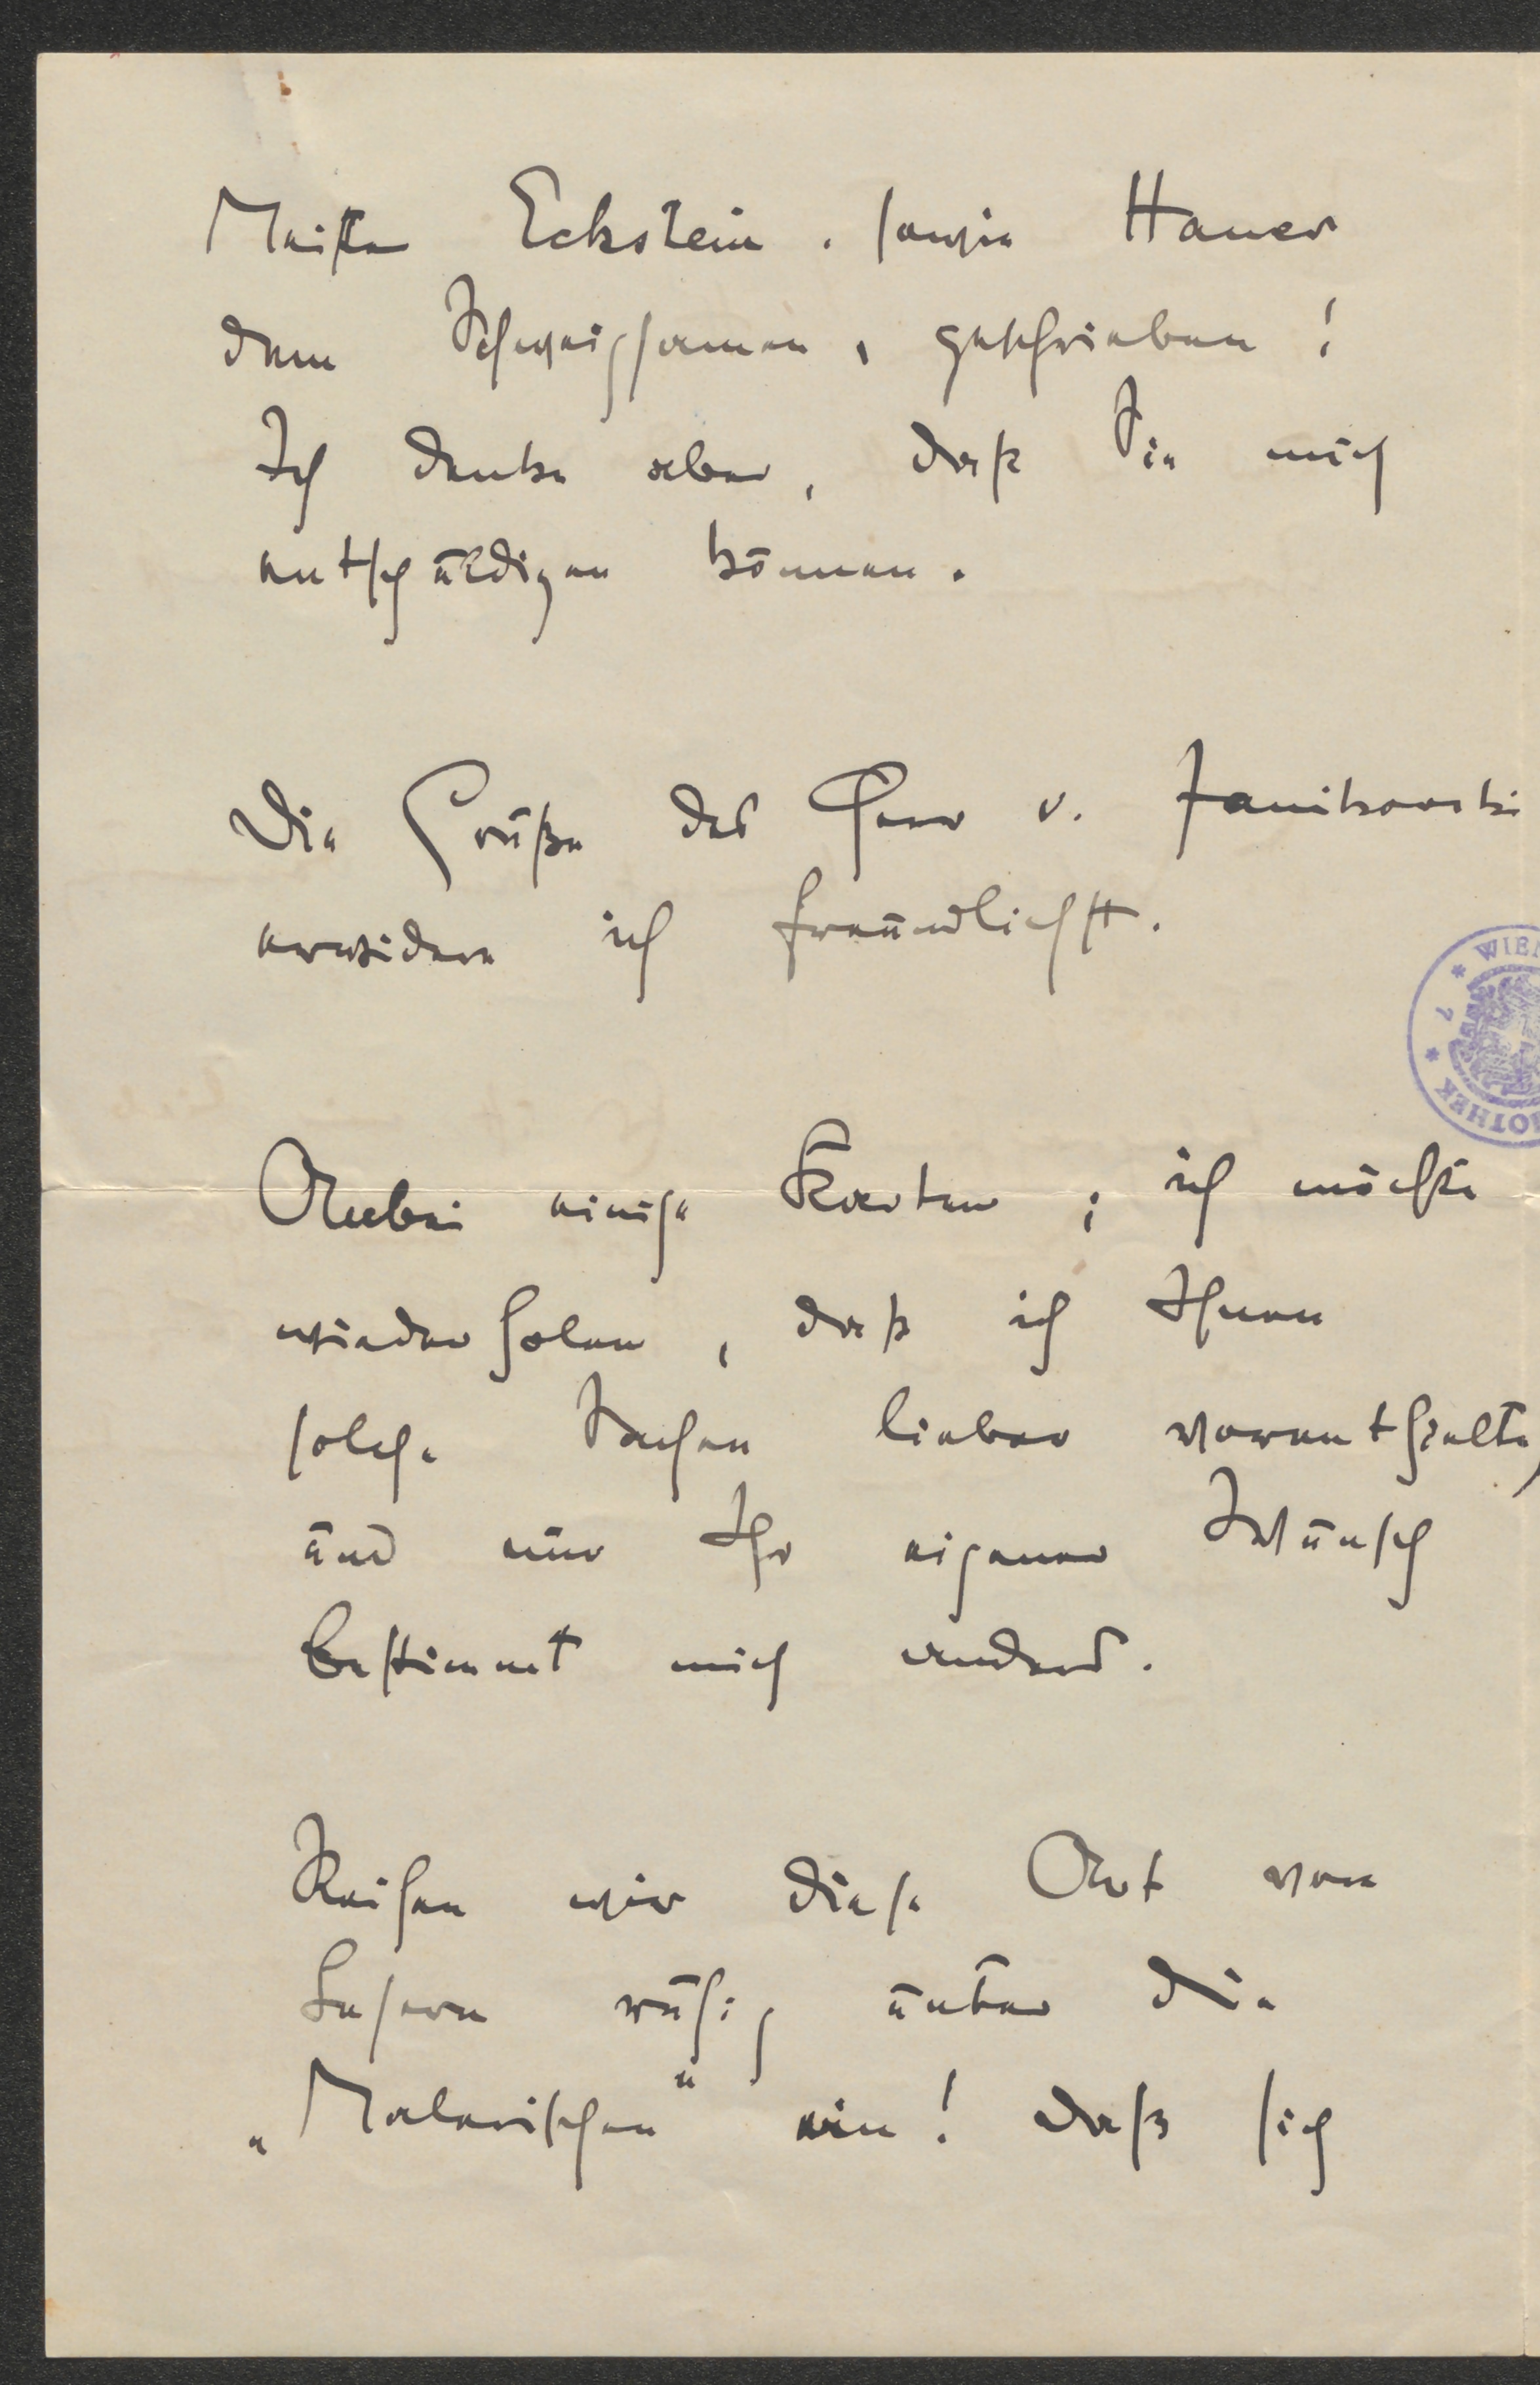 Meister Eckstein, sowie Hauer
dem Schweigsamen, geschrieben!
Ich denke aber, daß Sie mich
entschuldigen können.
Die Grüße des Herr v. Janikowski
erwidere ich freundlichst.
Anbei einige Karten; ich möchte
wiederholen, daß ich Ihnen
solche Sachen lieber vorenthielte,
und nur Ihr eigener Wunsch
bestimmt mich anders.
Reihen wir diese Art von
Lesern ruhig unter die
„Malerischen“ ein! daß sich
WIEN
7
OTHEK